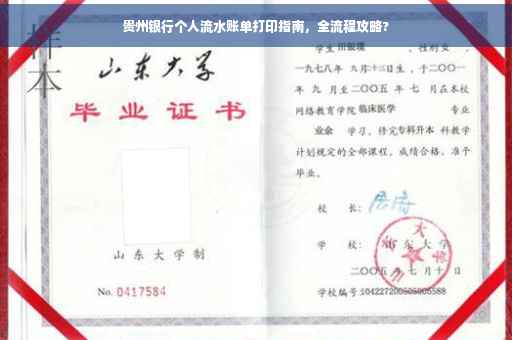 贵州银行个人流水账单打印指南，全流程攻略？
样本
山东大学
毕业证书
山东大学制
No. 0417584
学生
性别
一九七八年九月十三日生，于二〇〇一
年九月至二〇〇五年七月在本校
网络教育学院 临床医学 专业
业余 学习，修完专科升本科教学
计划规定的全部课程，成绩合格，准予
毕业。
校长：
学校：山东大学
二〇〇五年七月十日
学校编号:104227200505005588